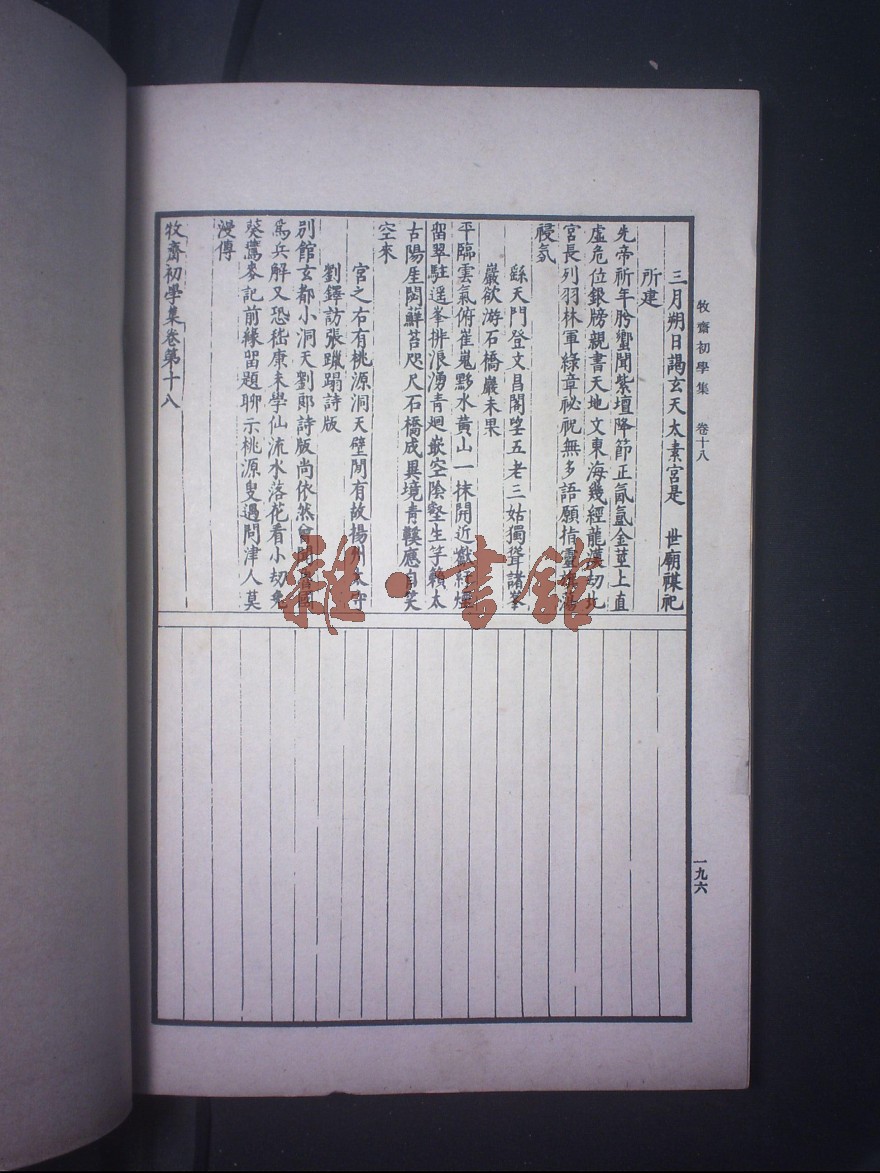 牧齋初學集　卷十八
三月朔日謁玄天太素宮是　世廟禖祀
所建
先帝祈年肹蠁聞紫壇降節正氤氳金莖上直
虛危位銀牓親書天地文東海幾經龍漢劫北
宮長列羽林軍綠章祕祝無多語願指靈旗
祲氛
繇天門登文昌閣望五老三姑獨聳諸峯
巖欲游石橋巖未果
平臨雲氣俯崔嵬黟水黃山一抹開近巘紅煙
留翠駐遥峯排浪湧青迴嵌空陰壑生竽籟太
古陽厓閟蘚苔咫尺石橋成異境青鞵應自笑
空來
宮之右有桃源洞天壁閒有故揚州太守
劉鐸訪張邋遢詩版
別館玄都小洞天劉郎詩版尚依然
爲兵解又恐嵇康未學仙流水落花看小劫兔
葵鷰麥記前緣留題聊示桃源叟遇問津人莫
漫傳
牧齋初學集卷第十八
一九六
雜·書館